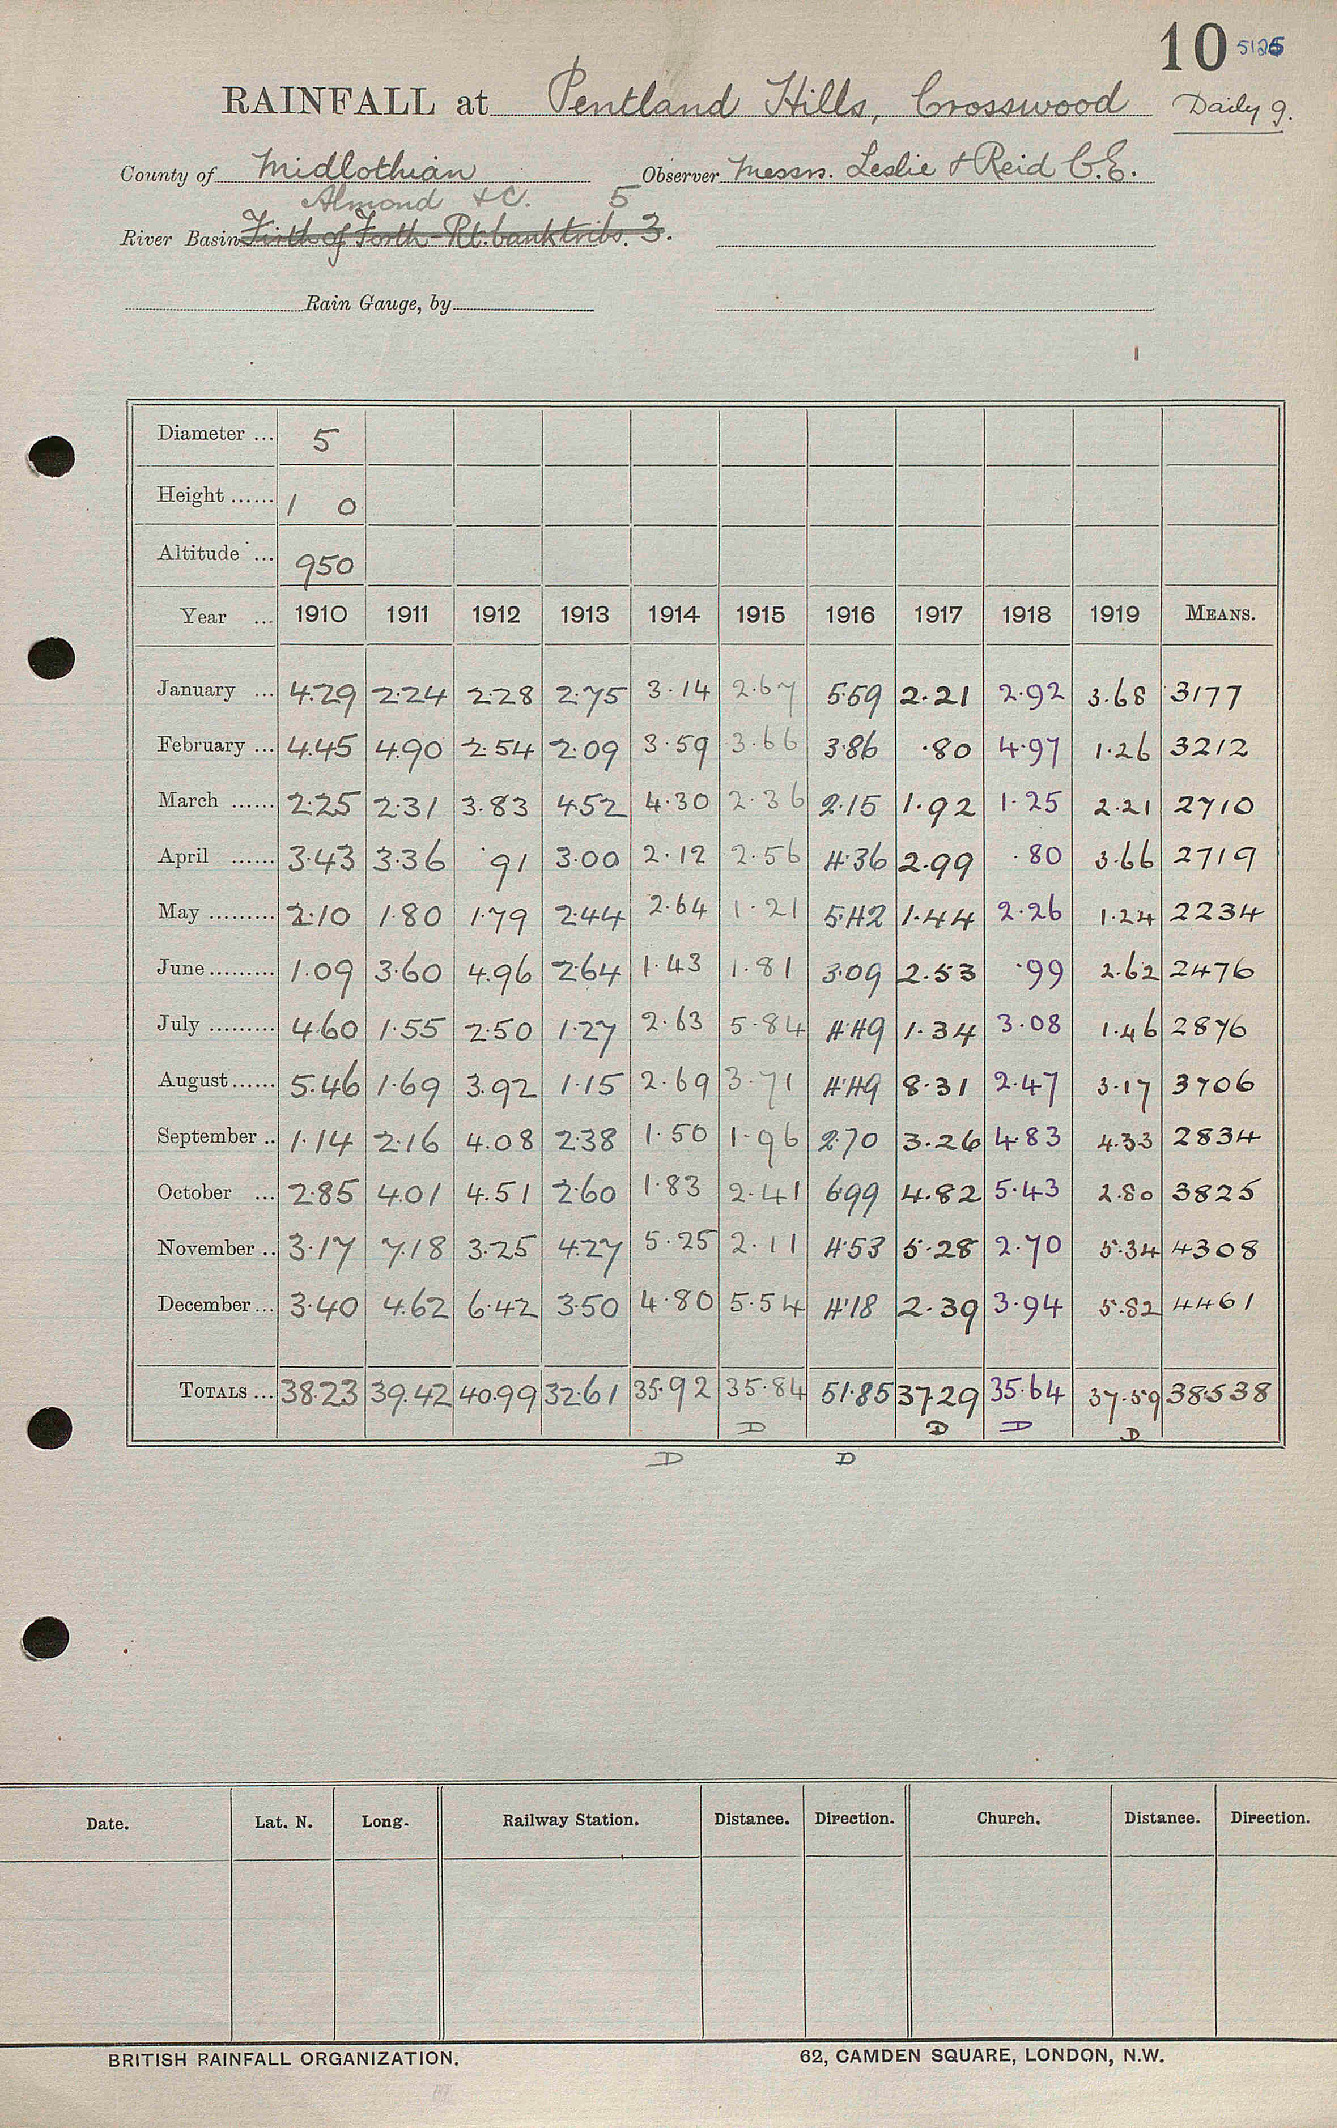 10 5125
RAINFALL at Pentland Hills, Crosswood Daily 9.
County of Midlothian Observer Messrs. Leslie & Reid C.E.
Almond &c. 5
River Basin Firth of Forth - Rt. bank tribs. 3.
Rain Gauge, by
Diameter ... 5
Height ...... 1 0
Altitude ... 950
Year ... 1910 1911 1912 1913 1914 1915 1916 1917 1918 1919 MEANS.
January ... 4.29 2.24 2.28 2.75 3.14 2.67 5.59 2.21 2.92 3.68 3177
February ... 4.45 4.90 2.54 2.09 3.59 3.66 3.86 .80 4.97 1.26 3212
March ...... 2.25 2.31 3.83 4.52 4.30 2.36 2.15 1.92 1.25 2.21 2710
April ...... 3.43 3.36 .91 3.00 2.12 2.56 4.36 2.99 .80 3.66 2719
May ......... 2.10 1.80 1.79 2.44 2.64 1.21 5.42 1.44 2.26 1.24 2234
June ......... 1.09 3.60 4.96 2.64 1.43 1.81 3.09 2.53 .99 2.62 2476
July ......... 4.60 1.55 2.50 1.27 2.63 5.84 4.49 1.34 3.08 1.46 2876
August ...... 5.46 1.69 3.92 1.15 2.69 3.71 4.49 8.31 2.47 3.17 3706
September .. 1.14 2.16 4.08 2.38 1.50 1.96 2.70 3.26 4.83 4.33 2834
October ... 2.85 4.01 4.51 2.60 1.83 2.41 6.99 4.82 5.43 2.80 3825
November .. 3.17 7.18 3.25 4.27 5.25 2.11 4.53 5.28 2.70 5.34 4308
December ... 3.40 4.62 6.42 3.50 4.80 5.54 4.18 2.39 3.94 5.82 4461
TOTALS ... 38.23 39.42 40.99 32.61 35.92 35.84 51.85 37.29 35.64 37.59 38538
D D D D
D D
Date. Lat. N. Long. Railway Station. Distance. Direction. Church. Distance. Direction.
BRITISH RAINFALL ORGANIZATION. 62, CAMDEN SQUARE, LONDON, N.W.